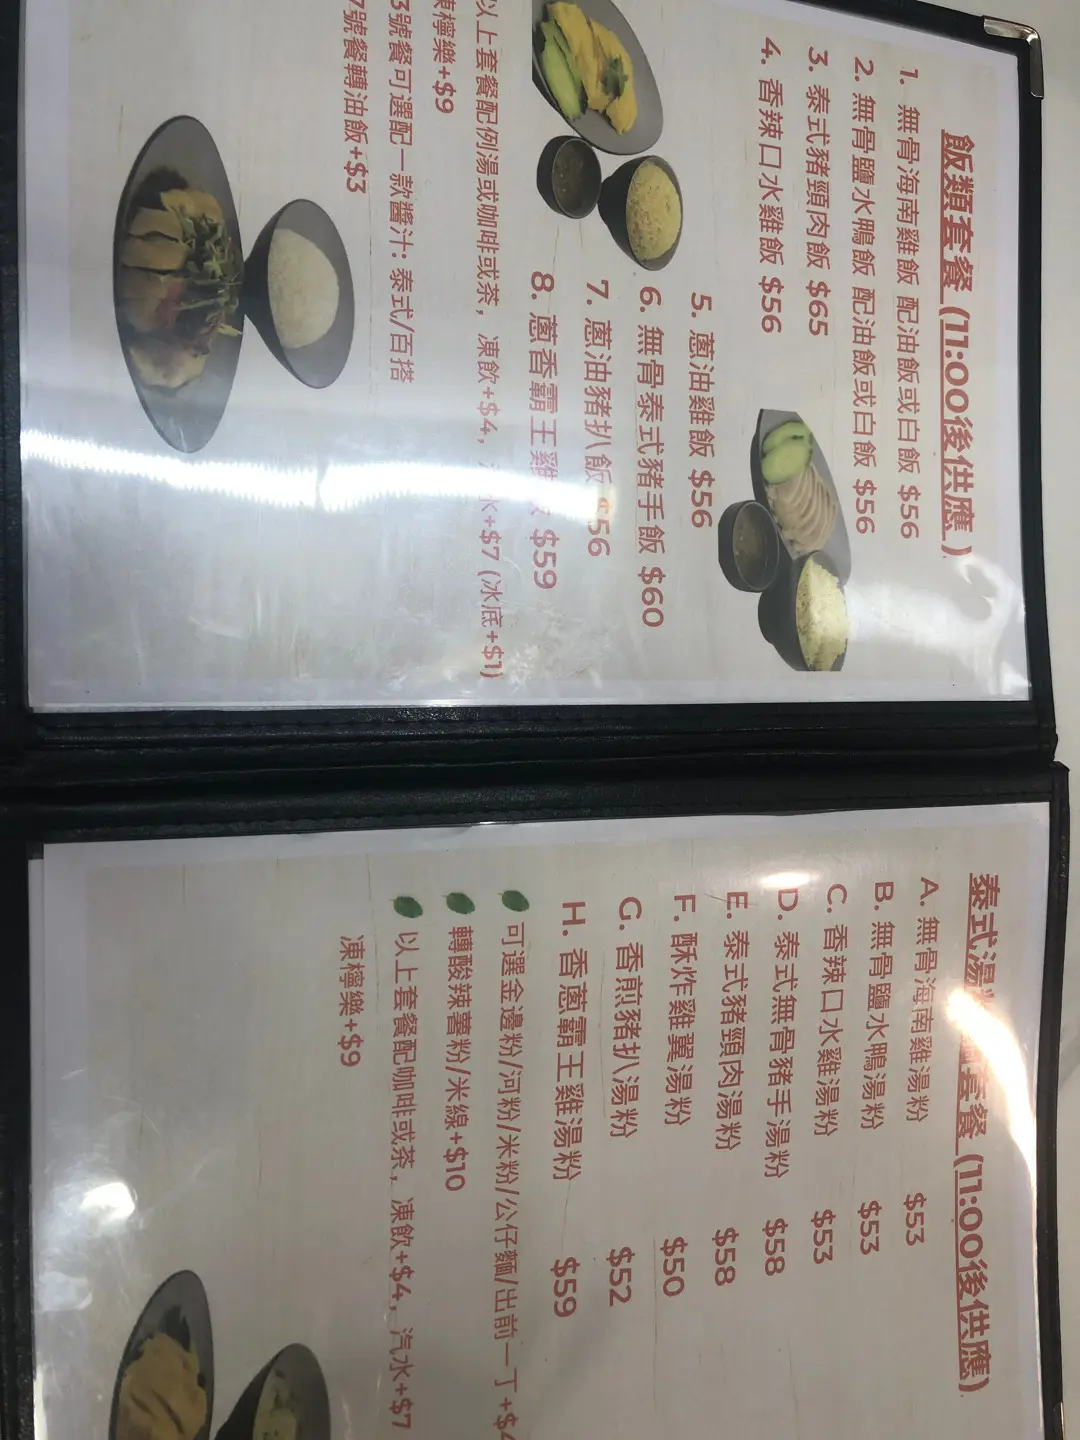 飯類套餐 (11:00後供應)
1. 無骨海南雞飯 配油飯或白飯 $56
2. 無骨鹽水鴨飯 配油飯或白飯 $56
3. 泰式豬頸肉飯 $65
4. 香辣口水雞飯 $56
5. 蔥油雞飯 $56
6. 無骨泰式豬手飯 $60
7. 蔥油豬扒飯 $56
8. 蔥香霸王雞 $59
以上套餐配例湯或咖啡或茶, 凍飲+$4, 水+$7 (冰底+$1)
凍檸樂+$9
3號餐可選配一款醬汁: 泰式/百搭
7號餐轉油飯+$3
泰式湯 套餐 (11:00後供應)
A. 無骨海南雞湯粉 $53
B. 無骨鹽水鴨湯粉 $53
C. 香辣口水雞湯粉 $53
D. 泰式無骨豬手湯粉 $58
E. 泰式豬頸肉湯粉 $58
F. 酥炸雞翼湯粉 $50
G. 香煎豬扒湯粉 $52
H. 香蔥霸王雞湯粉 $59
可選金邊粉/河粉/米粉/公仔麵/出前一丁+$4
轉酸辣薯粉/米線+$10
以上套餐配咖啡或茶, 凍飲+$4, 汽水+$7
凍檸樂+$9